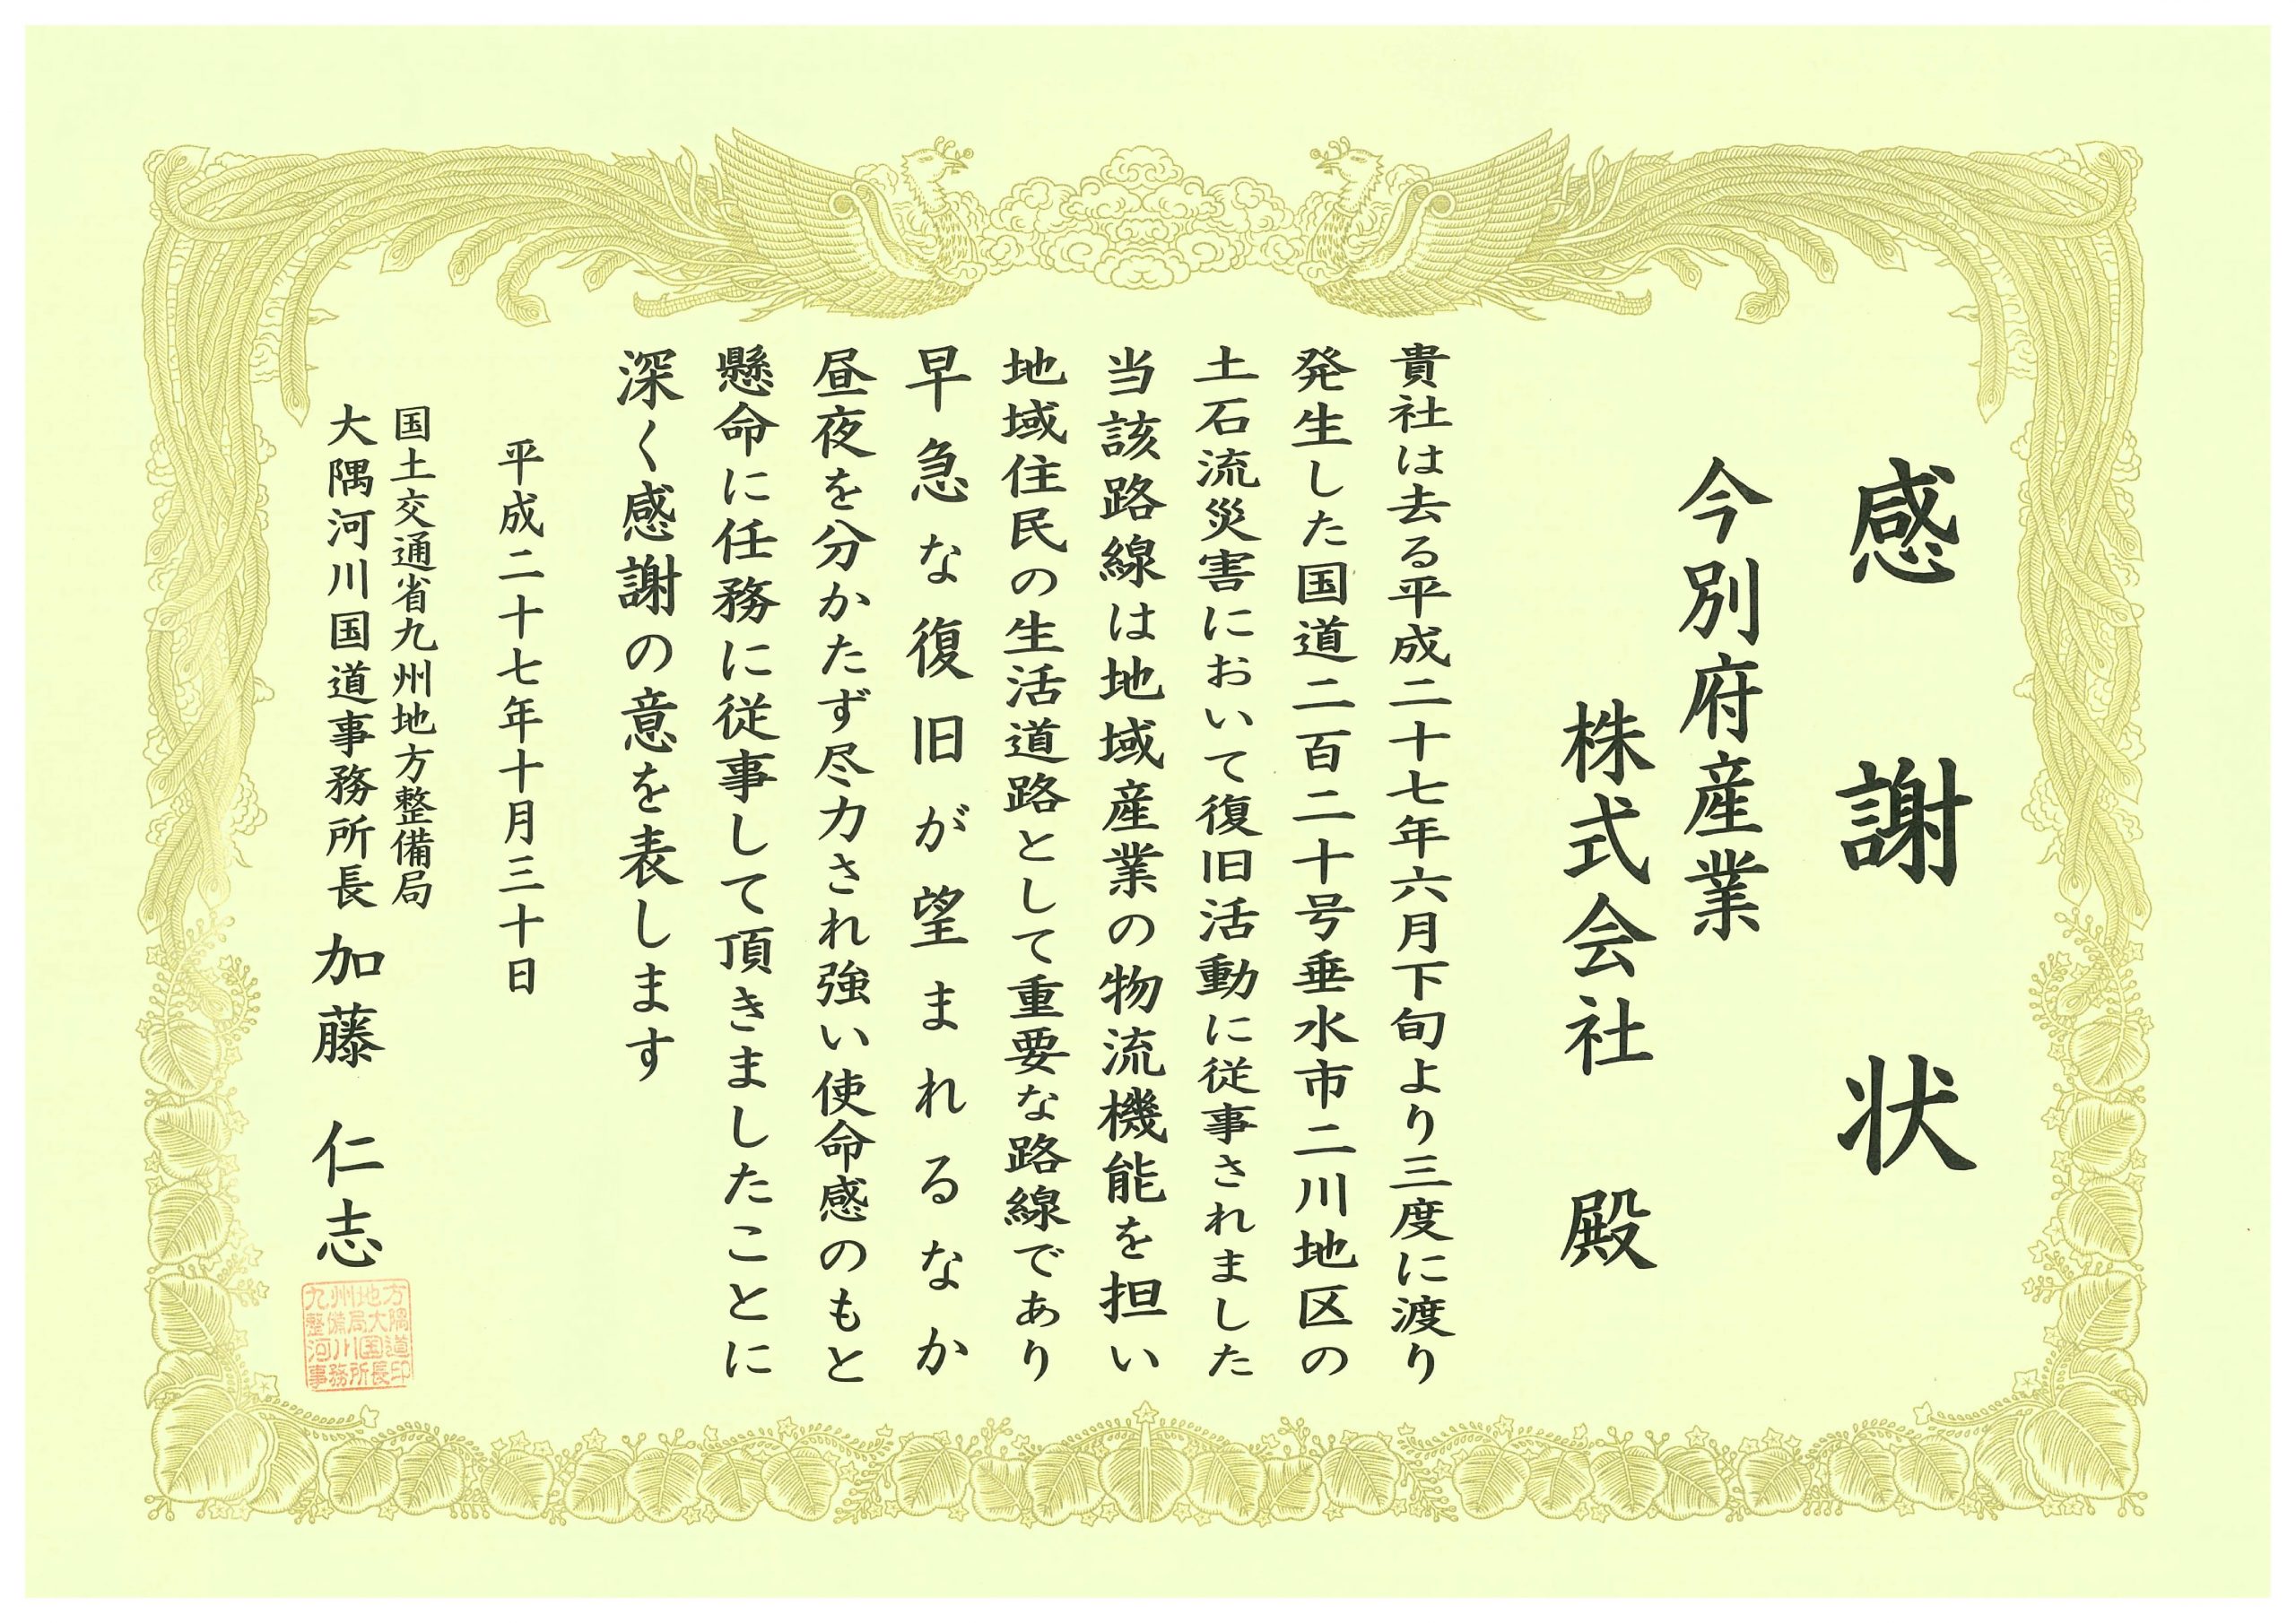 感謝状
今別府産業
株式会社 殿
貴社は去る平成二十七年六月下旬より三度に渡り
発生した国道二百二十号垂水市二川地区の
土石流災害において復旧活動に従事されました
当該路線は地域産業の物流機能を担い
地域住民の生活道路として重要な路線であり
早急な復旧が望まれるなか
昼夜を分かたず尽力され強い使命感のもと
懸命に任務に従事して頂きましたことに
深く感謝の意を表します
平成二十七年十月三十日
国土交通省九州地方整備局
大隅河川国道事務所長 加藤 仁志
九州地方
整備局大隅
河川国道
事務所長印